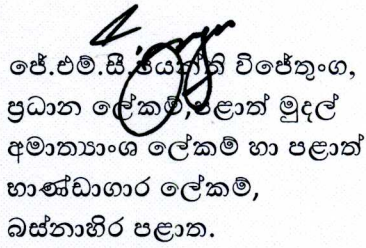 ජේ.එම්.සී.ජයන්ති විජේතුංග,
ප්‍රධාන ලේකම්,පළාත් මුදල්
අමාත්‍යාංශ ලේකම් හා පළාත්
භාණ්ඩාගාර ලේකම්,
බස්නාහිර පළාත.